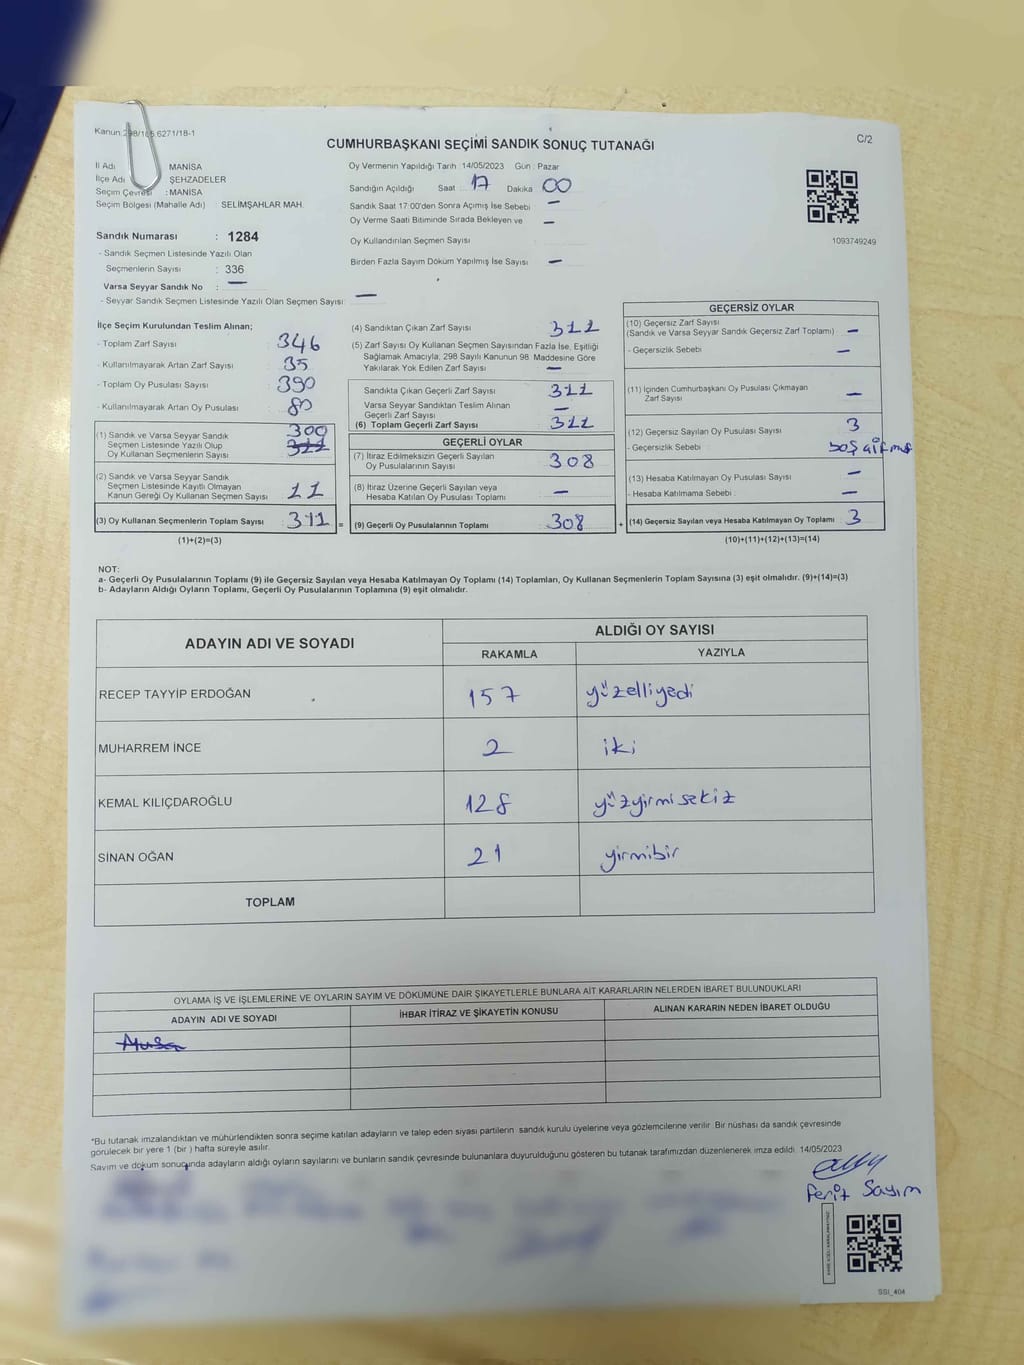 Kanun 298/105,6271/18-1
C/2
CUMHURBAŞKANI SEÇİMİ SANDIK SONUÇ TUTANAĞI
İl Adı MANİSA
İlçe Adı ŞEHZADELER
Seçim Çevresi : MANİSA
Seçim Bölgesi (Mahalle Adı) SELİMŞAHLAR MAH.
Sandık Numarası : 1284
- Sandık Seçmen Listesinde Yazılı Olan
Seçmenlerin Sayısı : 336
Varsa Seyyar Sandık No : —
- Seyyar Sandık Seçmen Listesinde Yazılı Olan Seçmen Sayısı: —
Oy Vermenin Yapıldığı Tarih : 14/05/2023 Gün : Pazar
Sandığın Açıldığı Saat 17 Dakika 00
Sandık Saat 17:00'den Sonra Açımış İse Sebebi —
Oy Verme Saati Bitiminde Sırada Bekleyen ve —
Oy Kullandırılan Seçmen Sayısı
Birden Fazla Sayım Döküm Yapılmış İse Sayısı —
1093749249
İlçe Seçim Kurulundan Teslim Alınan;
- Toplam Zarf Sayısı 346
- Kullanılmayarak Artan Zarf Sayısı 35
- Toplam Oy Pusulası Sayısı 390
- Kullanılmayarak Artan Oy Pusulası 80
(1) Sandık ve Varsa Seyyar Sandık 300
Seçmen Listesinde Yazılı Olup
Oy Kullanan Seçmenlerin Sayısı
(2) Sandık ve Varsa Seyyar Sandık
Seçmen Listesinde Kayıtlı Olmayan
Kanun Gereği Oy Kullanan Seçmen Sayısı 11
(3) Oy Kullanan Seçmenlerin Toplam Sayısı 311 =
(1)+(2)=(3)
(4) Sandıktan Çıkan Zarf Sayısı 311
(5) Zarf Sayısı Oy Kullanan Seçmen Sayısından Fazla İse, Eşitliği
Sağlamak Amacıyla, 298 Sayılı Kanunun 98. Maddesine Göre
Yakılarak Yok Edilen Zarf Sayısı —
Sandıkta Çıkan Geçerli Zarf Sayısı 311
Varsa Seyyar Sandıktan Teslim Alınan
Geçerli Zarf Sayısı —
(6) Toplam Geçerli Zarf Sayısı 311
GEÇERLİ OYLAR
(7) İtiraz Edilmeksizin Geçerli Sayılan
Oy Pusulalarının Sayısı 308
(8) İtiraz Üzerine Geçerli Sayılan veya
Hesaba Katılan Oy Pusulası Toplamı —
(9) Geçerli Oy Pusulalarının Toplamı 308 +
GEÇERSİZ OYLAR
(10) Geçersiz Zarf Sayısı
(Sandık ve Varsa Seyyar Sandık Geçersiz Zarf Toplamı) —
- Geçersizlik Sebebi —
(11) İçinden Cumhurbaşkanı Oy Pusulası Çıkmayan
Zarf Sayısı —
(12) Geçersiz Sayılan Oy Pusulası Sayısı 3
- Geçersizlik Sebebi
(13) Hesaba Katılmayan Oy Pusulası Sayısı —
- Hesaba Katılmama Sebebi —
(14) Geçersiz Sayılan veya Hesaba Katılmayan Oy Toplamı 3
(10)+(11)+(12)+(13)=(14)
NOT:
a- Geçerli Oy Pusulalarının Toplamı (9) ile Geçersiz Sayılan veya Hesaba Katılmayan Oy Toplamı (14) Toplamları, Oy Kullanan Seçmenlerin Toplam Sayısına (3) eşit olmalıdır. (9)+(14)=(3)
b- Adayların Aldığı Oyların Toplamı, Geçerli Oy Pusulalarının Toplamına (9) eşit olmalıdır.
ADAYIN ADI VE SOYADI
ALDIĞI OY SAYISI
RAKAMLA YAZIYLA
RECEP TAYYİP ERDOĞAN 157 yüzelliyedi
MUHARREM İNCE 2 iki
KEMAL KILIÇDAROĞLU 128 yüzyirmisekiz
SİNAN OĞAN 21 yirmibir
TOPLAM
OYLAMA İŞ VE İŞLEMLERİNE VE OYLARIN SAYIM VE DÖKÜMÜNE DAİR ŞİKAYETLERLE BUNLARA AİT KARARLARIN NELERDEN İBARET BULUNDUKLARI
ADAYIN ADI VE SOYADI İHBAR İTİRAZ VE ŞİKAYETİN KONUSU ALINAN KARARIN NEDEN İBARET OLDUĞU
*Bu tutanak imzalandıktan ve mühürlendikten sonra seçime katılan adayların ve talep eden siyası partilerin sandık kurulu üyelerine veya gözlemcilerine verilir. Bir nüshası da sandık çevresinde
görülecek bir yere 1 (bir ) hafta süreyle asılır.
Sayım ve döküm sonuçunda adayların aldığı oyların sayılarını ve bunların sandık çevresinde bulunanlara duyurulduğunu gösteren bu tutanak tarafımızdan düzenlenerek imza edildi. 14/05/2023
Ferit Sayım
SSI_404